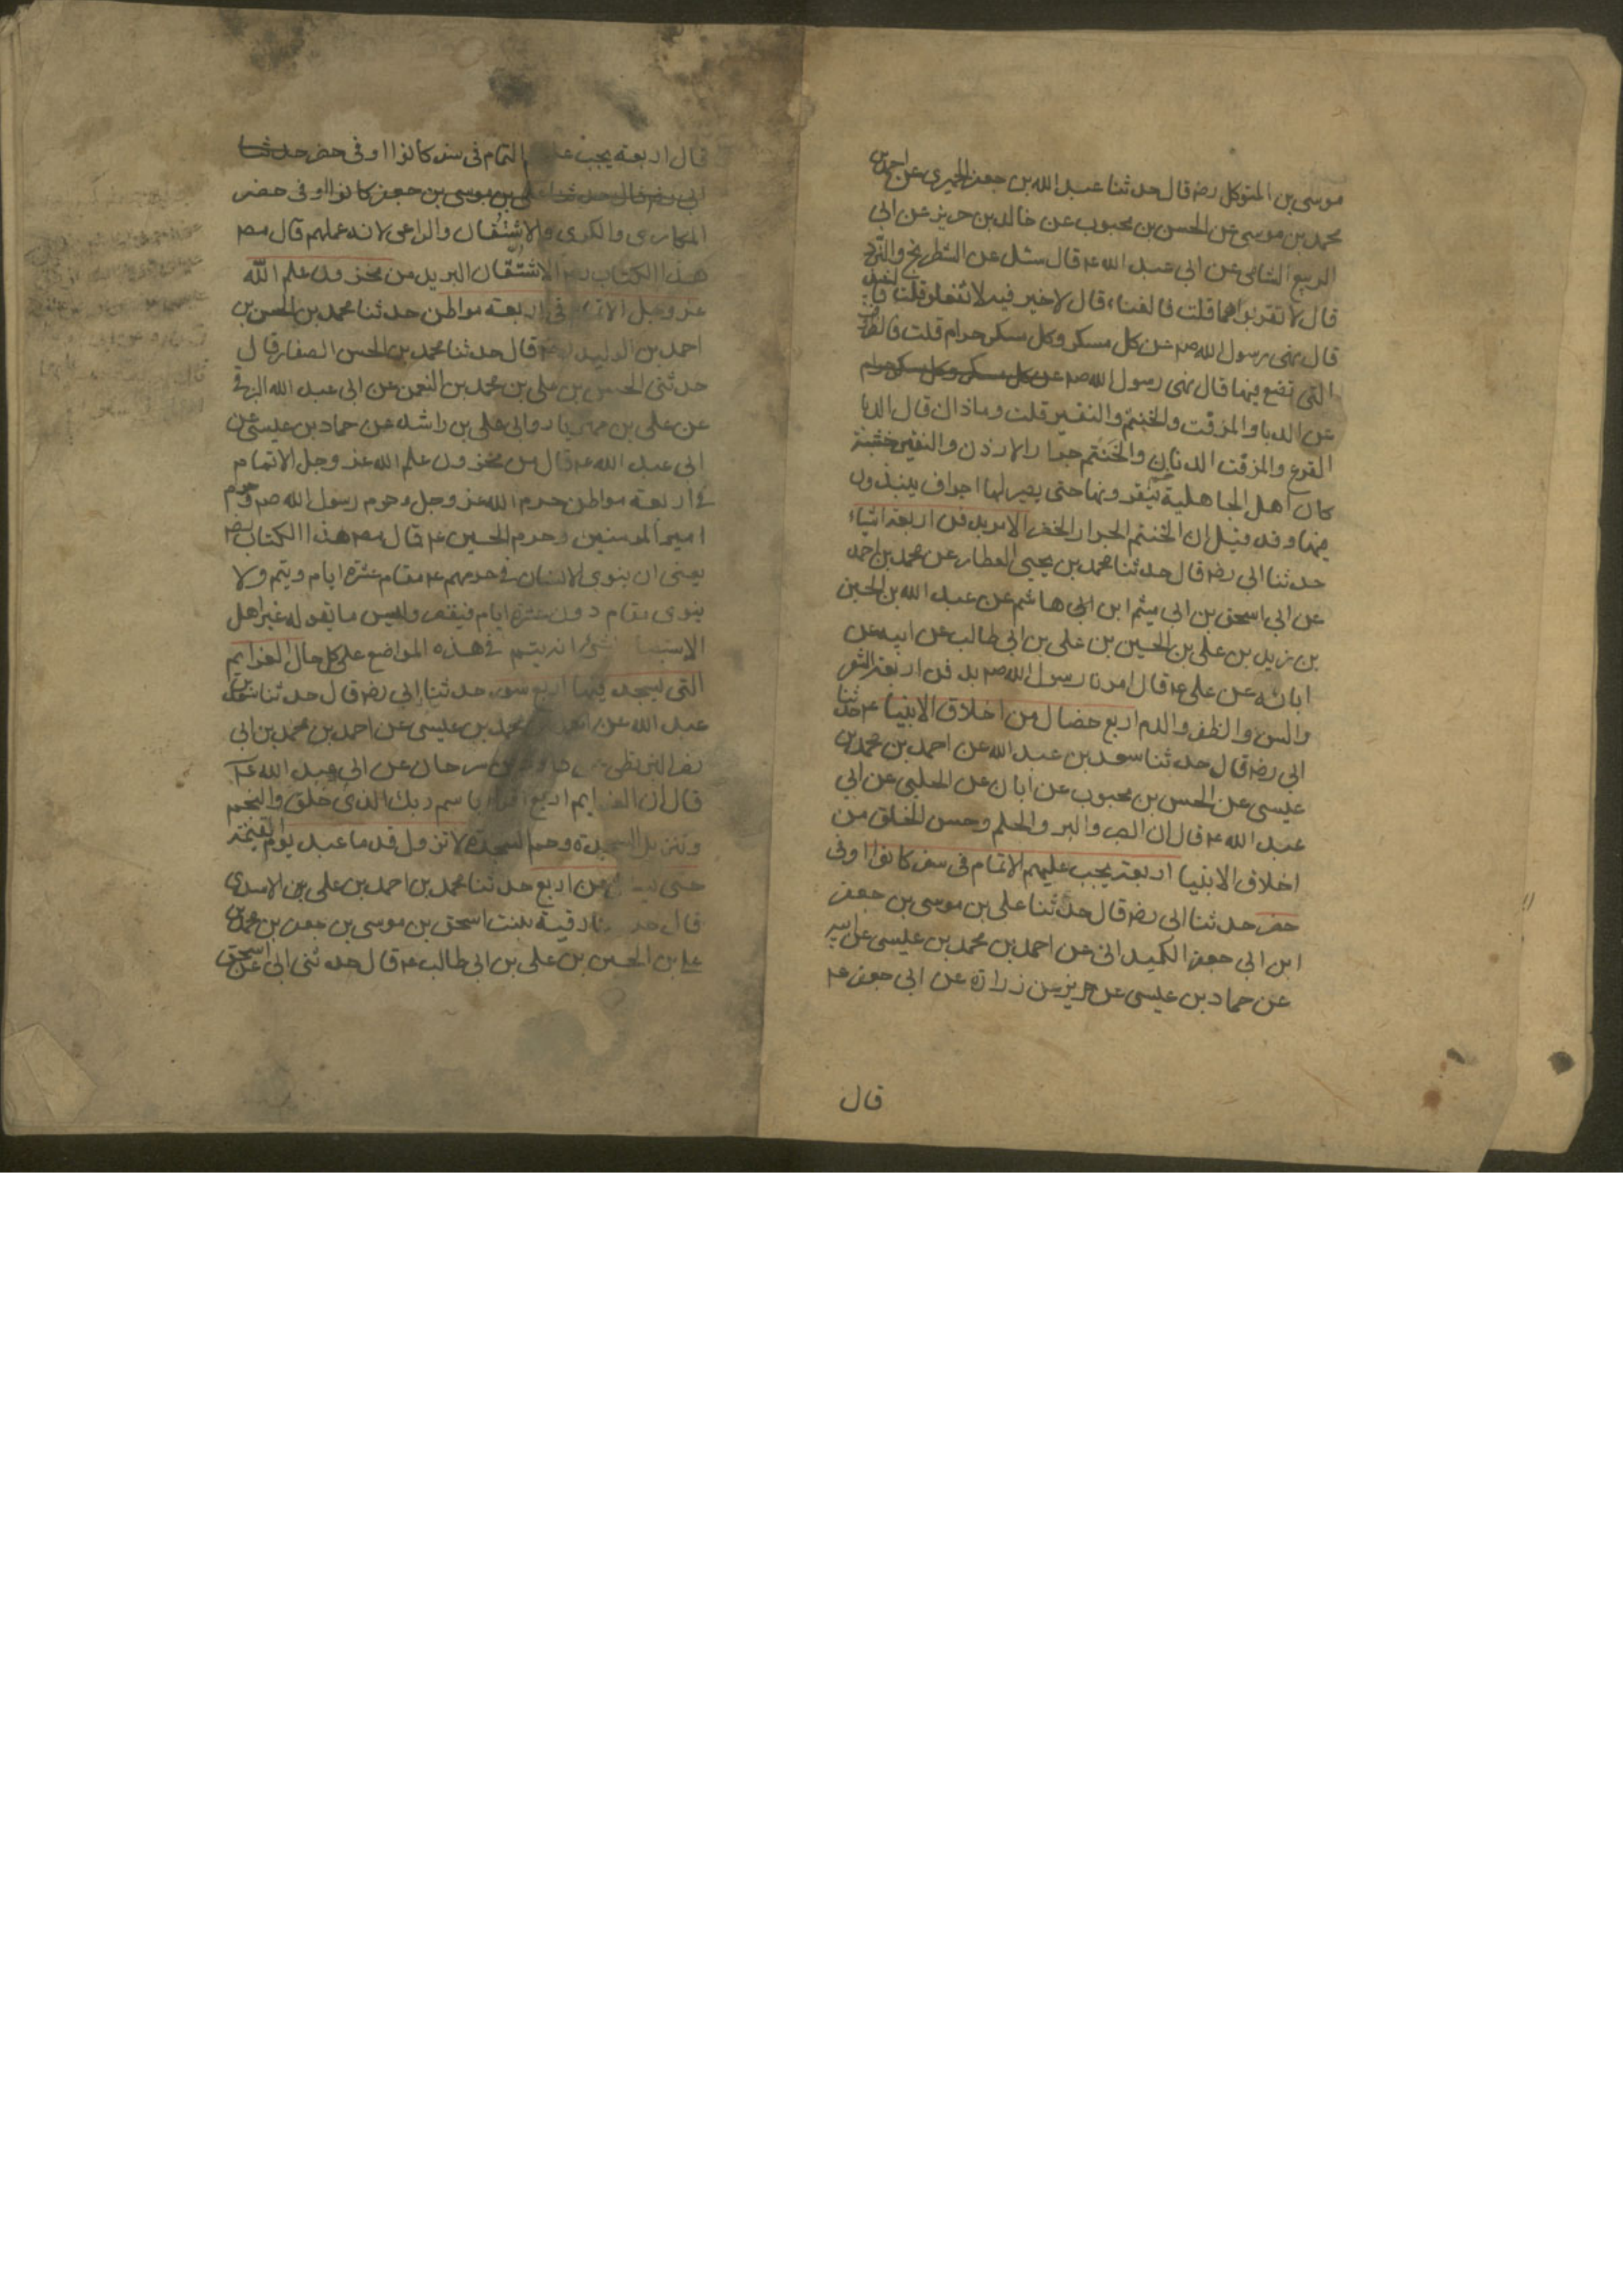 موسى بن المتوكل رضه قال حدثنا عبد الله بن جعفر الحميرى عن احمد بن
محمد بن موسى عن الحسن بن محبوب عن خالد بن جرير عن ابى
الربيع الشامى عن ابى عبد الله ع قال سئل عن الشطرنج والنرد
قال لا تقربوا هما قلت فالغناء قال لا خير فيه لا تفعلوا قلت فالنبيذ
قال نهى رسول الله صم عن كل مسكر وكل مسكر حرام قلت فالظروف
التى تضع فيها قال نهى رسول الله صم عن كل مسكر وكل مسكر حرام
عن الدبا والمزفت والختنم والنقير قلت وماذاك قال الدبا
القرع والمزفت الدنان والختنم جرار الاردن والنقير خشبة
كان اهل الجاهلية ينقرونها حتى يصير لها اجواف ينبذون
فيها وقد قيل ان الختنم الجرار الخضر الامر بدفن اربعة اشياء
حدثنا ابى رضه قال حدثنا محمد بن يحيى العطار عن محمد بن احمد
عن ابى اسحق بن ابى ميثم ابن ابى هاشم عن عبد الله بن الحسين
بن زيد بن على بن الحسين بن على بن ابى طالب عن ابيه عن
ابائه عن على ع قال امرنا رسول الله صم بدفن اربعة الشعر
والسن والظفر والدم اربع خصال من اخلاق الانبيا ع حدثنا
ابى رضه قال حدثنا سعد بن عبد الله عن احمد بن محمد بن
عيسى عن الحسن بن محبوب عن ابان عن الحلبى عن ابى
عبد الله ع قال ان الصبر والبر والحلم وحسن الخلق من
اخلاق الانبيا اربعة يجب عليهم الاتمام فى سفر كانوا او فى
حضر حدثنا ابى رضه قال حدثنا على بن موسى بن جعفر
ابن ابى جعفر الكميدانى عن احمد بن محمد بن عيسى عن ابيه
عن حماد بن عيسى عن حريز عن زرارة عن ابى جعفر ع
قال
قال اربعة يجب عليهم التمام فى سفر كانوا او فى حضر حدثنا
ابى رضه قال حدثنا على بن موسى بن جعفر كانوا او فى حضر
المكارى والكرى والاشتقان والراعى لانه عملهم قال مصـ
هذا الكتاب رضه الاشتقان البريد من مخزون علم الله
عز وجل الاتمام فى اربعة مواطن حدثنا محمد بن الحسن بن
احمد بن الوليد رضه قال حدثنا محمد بن الحسن الصفار قال
حدثنى الحسن بن على بن محمد بن النعمن عن ابى عبد الله البرقى
عن على بن مهزيار وابى على بن راشد عن حماد بن عيسى عن
ابى عبد الله ع قال من مخزون علم الله عز وجل الاتمام
فى اربعة مواطن حرم الله عز وجل وحرم رسول الله صم وحرم
امير المومنين وحرم الحسين ع قال مصـ هذا الكتاب رضه
يعنى ان ينوى الانسان فى حرمهم ع مقام عشرة ايام ويتم ولا
ينوى مقام دون عشرة ايام فيقصر وليس ما يقوله غير اهل
الاستبصار بشئ انه يتم فى هذه المواضع على كل حال العزايم
التى يسجد فيها اربع سور حدثنا ابى رضه قال حدثنا سعد بن
عبد الله عن احمد بن محمد بن عيسى عن احمد بن محمد بن ابى
نصر البزنطى عن داود بن سرحان عن ابى عبد الله ع
قال ان العزايم اربع اقرا باسم ربك الذى خلق والنجم
وتنزيل السجدة وحم السجدة لا تزول قدما عبد يوم القيمة
حتى يسال عن اربع حدثنا محمد بن احمد بن على بن الاسدى
قال حدثتنا رقية بنت اسحق بن موسى بن جعفر بن محمد بن
على بن الحسين بن على بن ابى طالب ع قال حدثنى ابى اسحق